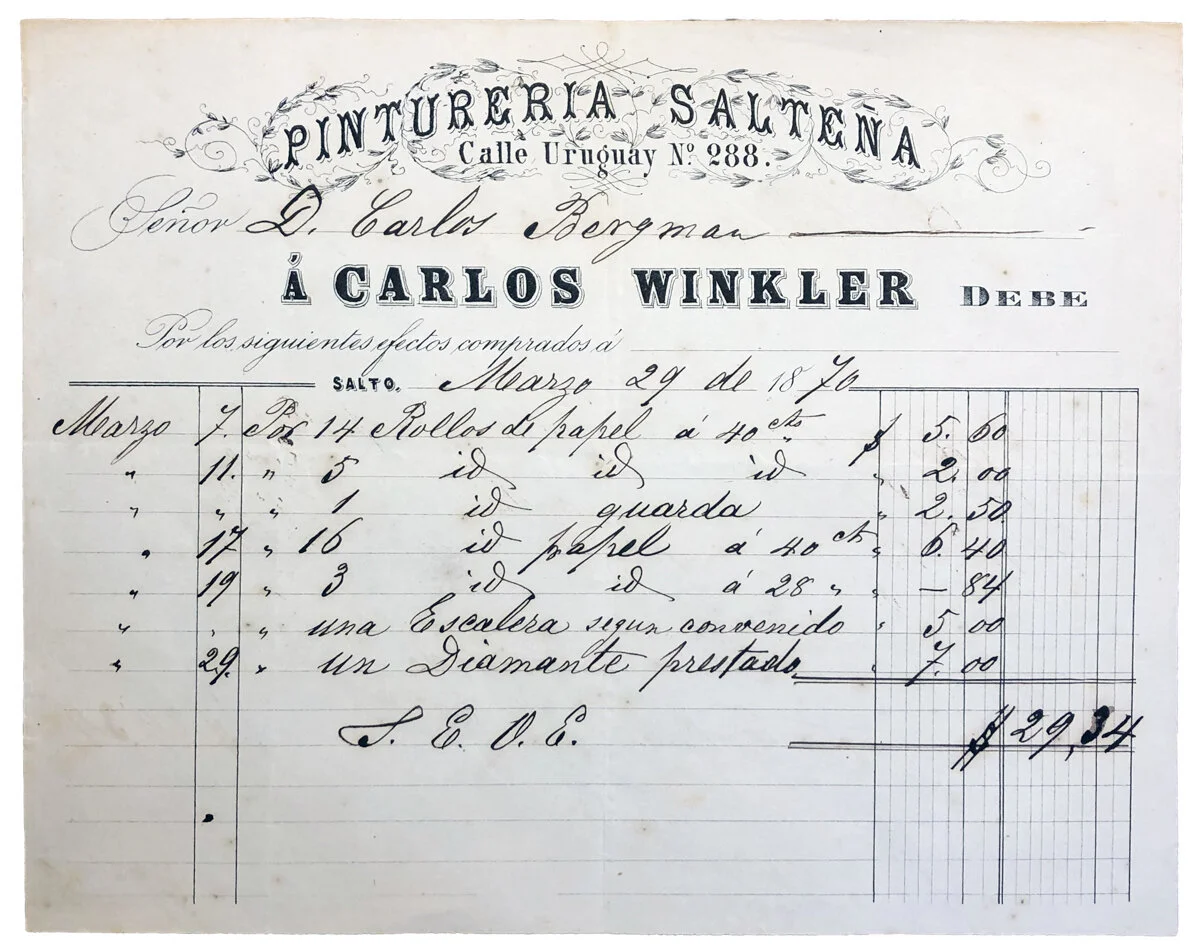 PINTURERIA SALTEÑA
Calle Uruguay Nº 288.
Señor D. Carlos Bergman
Á CARLOS WINKLER DEBE
Por los siguientes efectos comprados á
SALTO, Marzo 29 de 1870
Marzo 7. Por 14 Rollos de papel á 40 cts „ $ 5. 60
„ 11. „ 5 id id id „ 2. 00
„ „ „ 1 id guarda „ 2. 50
„ 17 „ 16 id papel á 40 cts „ 6. 40
„ 19 „ 3 id id á 28 „ „ — 84
„ „ „ una Escalera segun convenido „ 5 00
„ 29. „ un Diamante prestado „ 7. 00
$ 29,34
S. E. O. E.